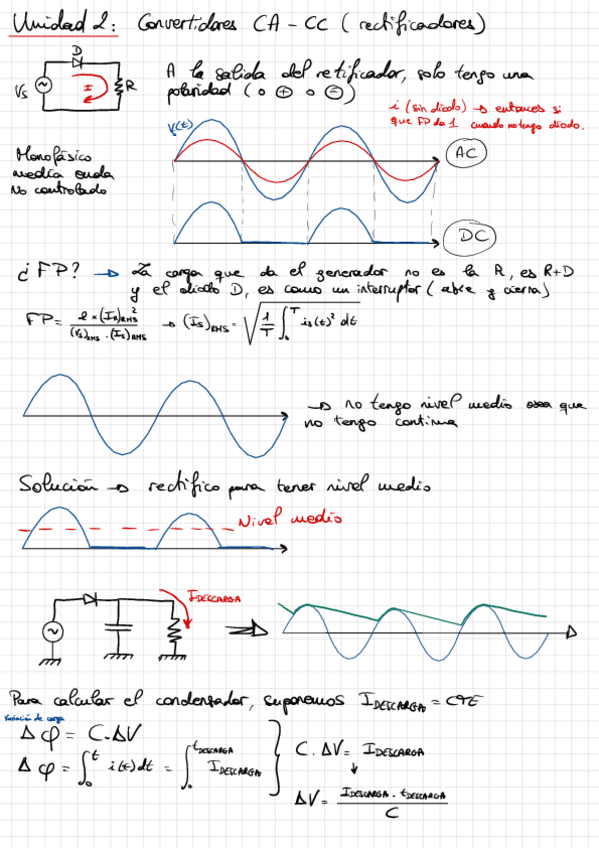 Unidad 2: Convertidores CA - CC (rectificadores)
D
Vs
I
R
A la salida del retificador, solo tengo una
polaridad (o ⊕ o ⊖)
i (sin diodo) → entonces si
que FP da 1 cuando no tengo diodo.
V(t)
AC
Monofásico
media onda
No controlado
DC
¿FP? → La carga que da el generador no es la R, es R+D
y el diodo D, es como un interruptor (abre y cierra)
FP = R × (Is)RMS² / (Vs)RMS · (Is)RMS → (Is)RMS = √(1/T ∫₀ᵀ is(t)² dt)
→ no tengo nivel medio osea que
no tengo continua
Solución → rectifico para tener nivel medio
Nivel medio
IDESCARGA
Para calcular el condensador, suponemos IDESCARGA = CTE
Variación de carga
Δφ = C·ΔV
Δφ = ∫₀ᵗ i(t)dt = ∫₀^tDESCARGA IDESCARGA
C·ΔV = IDESCARGA
↓
ΔV = IDESCARGA · tDESCARGA / C